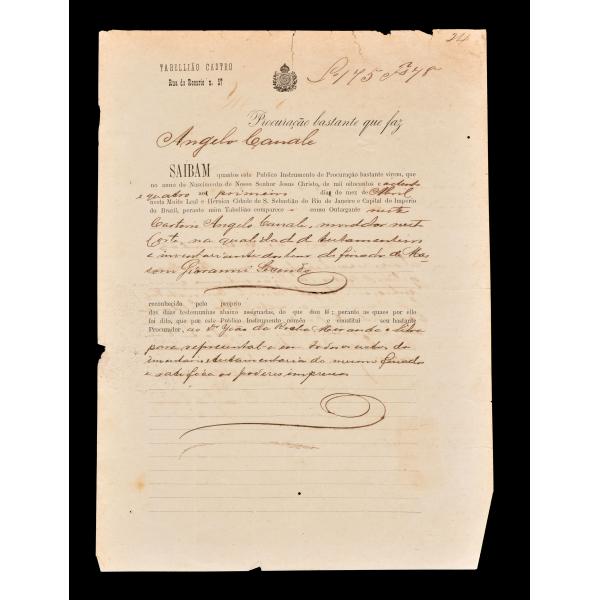 24
TABELLIÃO CASTRO
Rua do Rosario n. 57
L 175 Fs 48
Procuração bastante que faz
Angelo Canale
SAIBAM quantos este Publico Instrumento de Procuração bastante virem, que
no anno do Nascimento de Nosso Senhor Jesus Christo, de mil oitocentos e oitenta
e quatro aos primeiro dias do mez de Abril
nesta Muito Leal e Heroica Cidade de S. Sebastião do Rio de Janeiro e Capital do Imperio
do Brazil, perante mim Tabellião comparece como Outorgante neste
Cartorio Angelo Canale, morador nesta
Corte, na qualidade de testamenteiro
e inventariante dos bens do finado
Giovanni
reconhecido pelo proprio
das duas testemunhas abaixo assignadas, de que dou fé; perante as quaes por elle
foi dito, que por este Publico Instrumento nomêa e constitui seu bastante
Procurador, ao Dr João da Rocha Miranda e Silva
para represental-o em todos os actos do
inventario e testamentaria do mesmo finado
e ratifica os poderes impressos